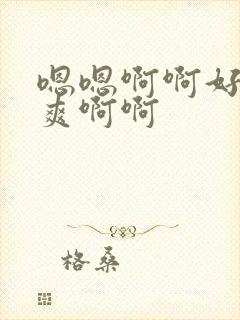 嗯嗯啊啊好
爽啊啊
格桑